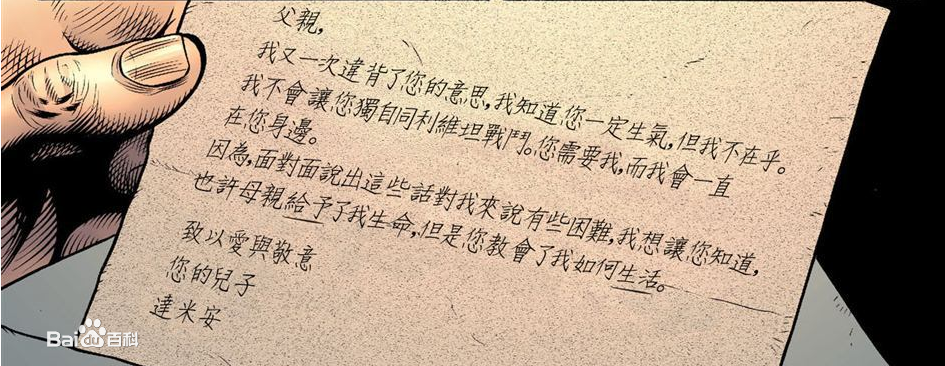 父親,
我又一次違背了您的意思,我知道您一定生氣,但我不在乎。
我不會讓您獨自同利維坦戰鬥。您需要我,而我會一直
在您身邊。
因為,面對面說出這些話對我來說有些困難,我想讓您知道,
也許母親給予了我生命,但是您教會了我如何生活。
致以愛與敬意
您的兒子
達米安
Baidu百科